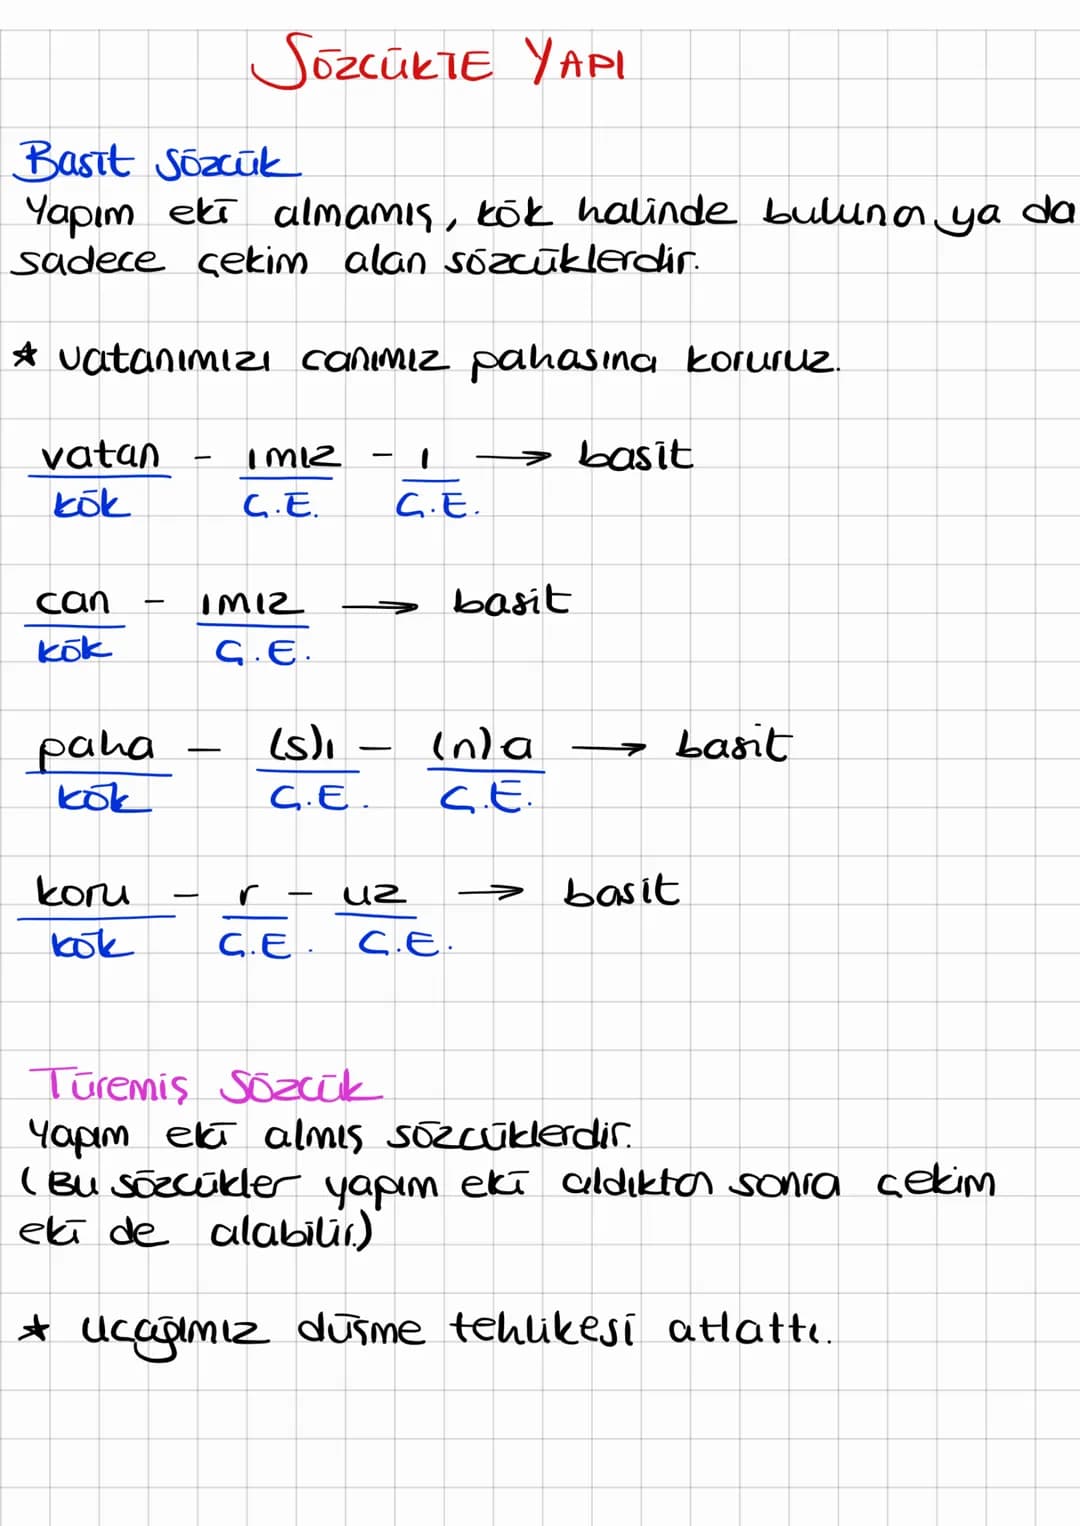 SÖZCÜKTE YAPI
Basit Sözcük
Yapım eki almamış, kök halinde bulunan ya da
sadece çekim alan sözcüklerdir.
* vatanımızı canımız pahasına koruruz.
vatan - ımız - ı → basit
kök Ç.E. Ç.E.
can - ımız → basit
kök Ç.E.
paha - (s)ı - (n)a → basit
kök Ç.E. Ç.E.
koru - r - uz → basit
kök Ç.E. Ç.E.
Türemiş Sözcük
Yapım eki almış sözcüklerdir.
(Bu sözcükler yapım eki aldıktan sonra çekim
eki de alabilir.)
* uçağımız düşme tehlikesi atlattı.